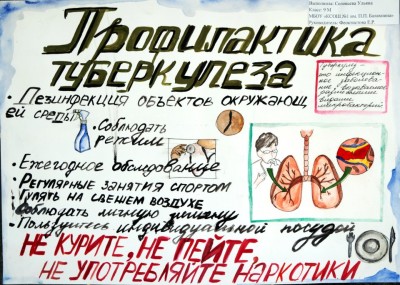 Класс: 9 М
Профилактика
туберкулеза
туберкулез -
это инфекцион-
ное заболева-
ние, вызываемое
микобактерией
• Дезинфекция объектов окружающ
ей среды
• Соблюдать
режим
• Ежегодное обследование
• Регулярные занятия спортом
Гулять на свежем воздухе
Соблюдать личную гигиену
• Пользуйтесь индивидуальной посудой
НЕ КУРИТЕ, НЕ ПЕЙТЕ,
НЕ УПОТРЕБЛЯЙТЕ НАРКОТИКИ